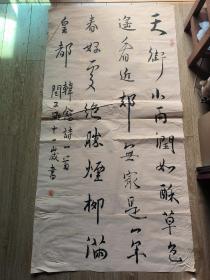 天街小雨潤如酥草色
遙看近却無最是一年
春好處絕勝煙柳滿
皇都 韓愈詩一首
歲書